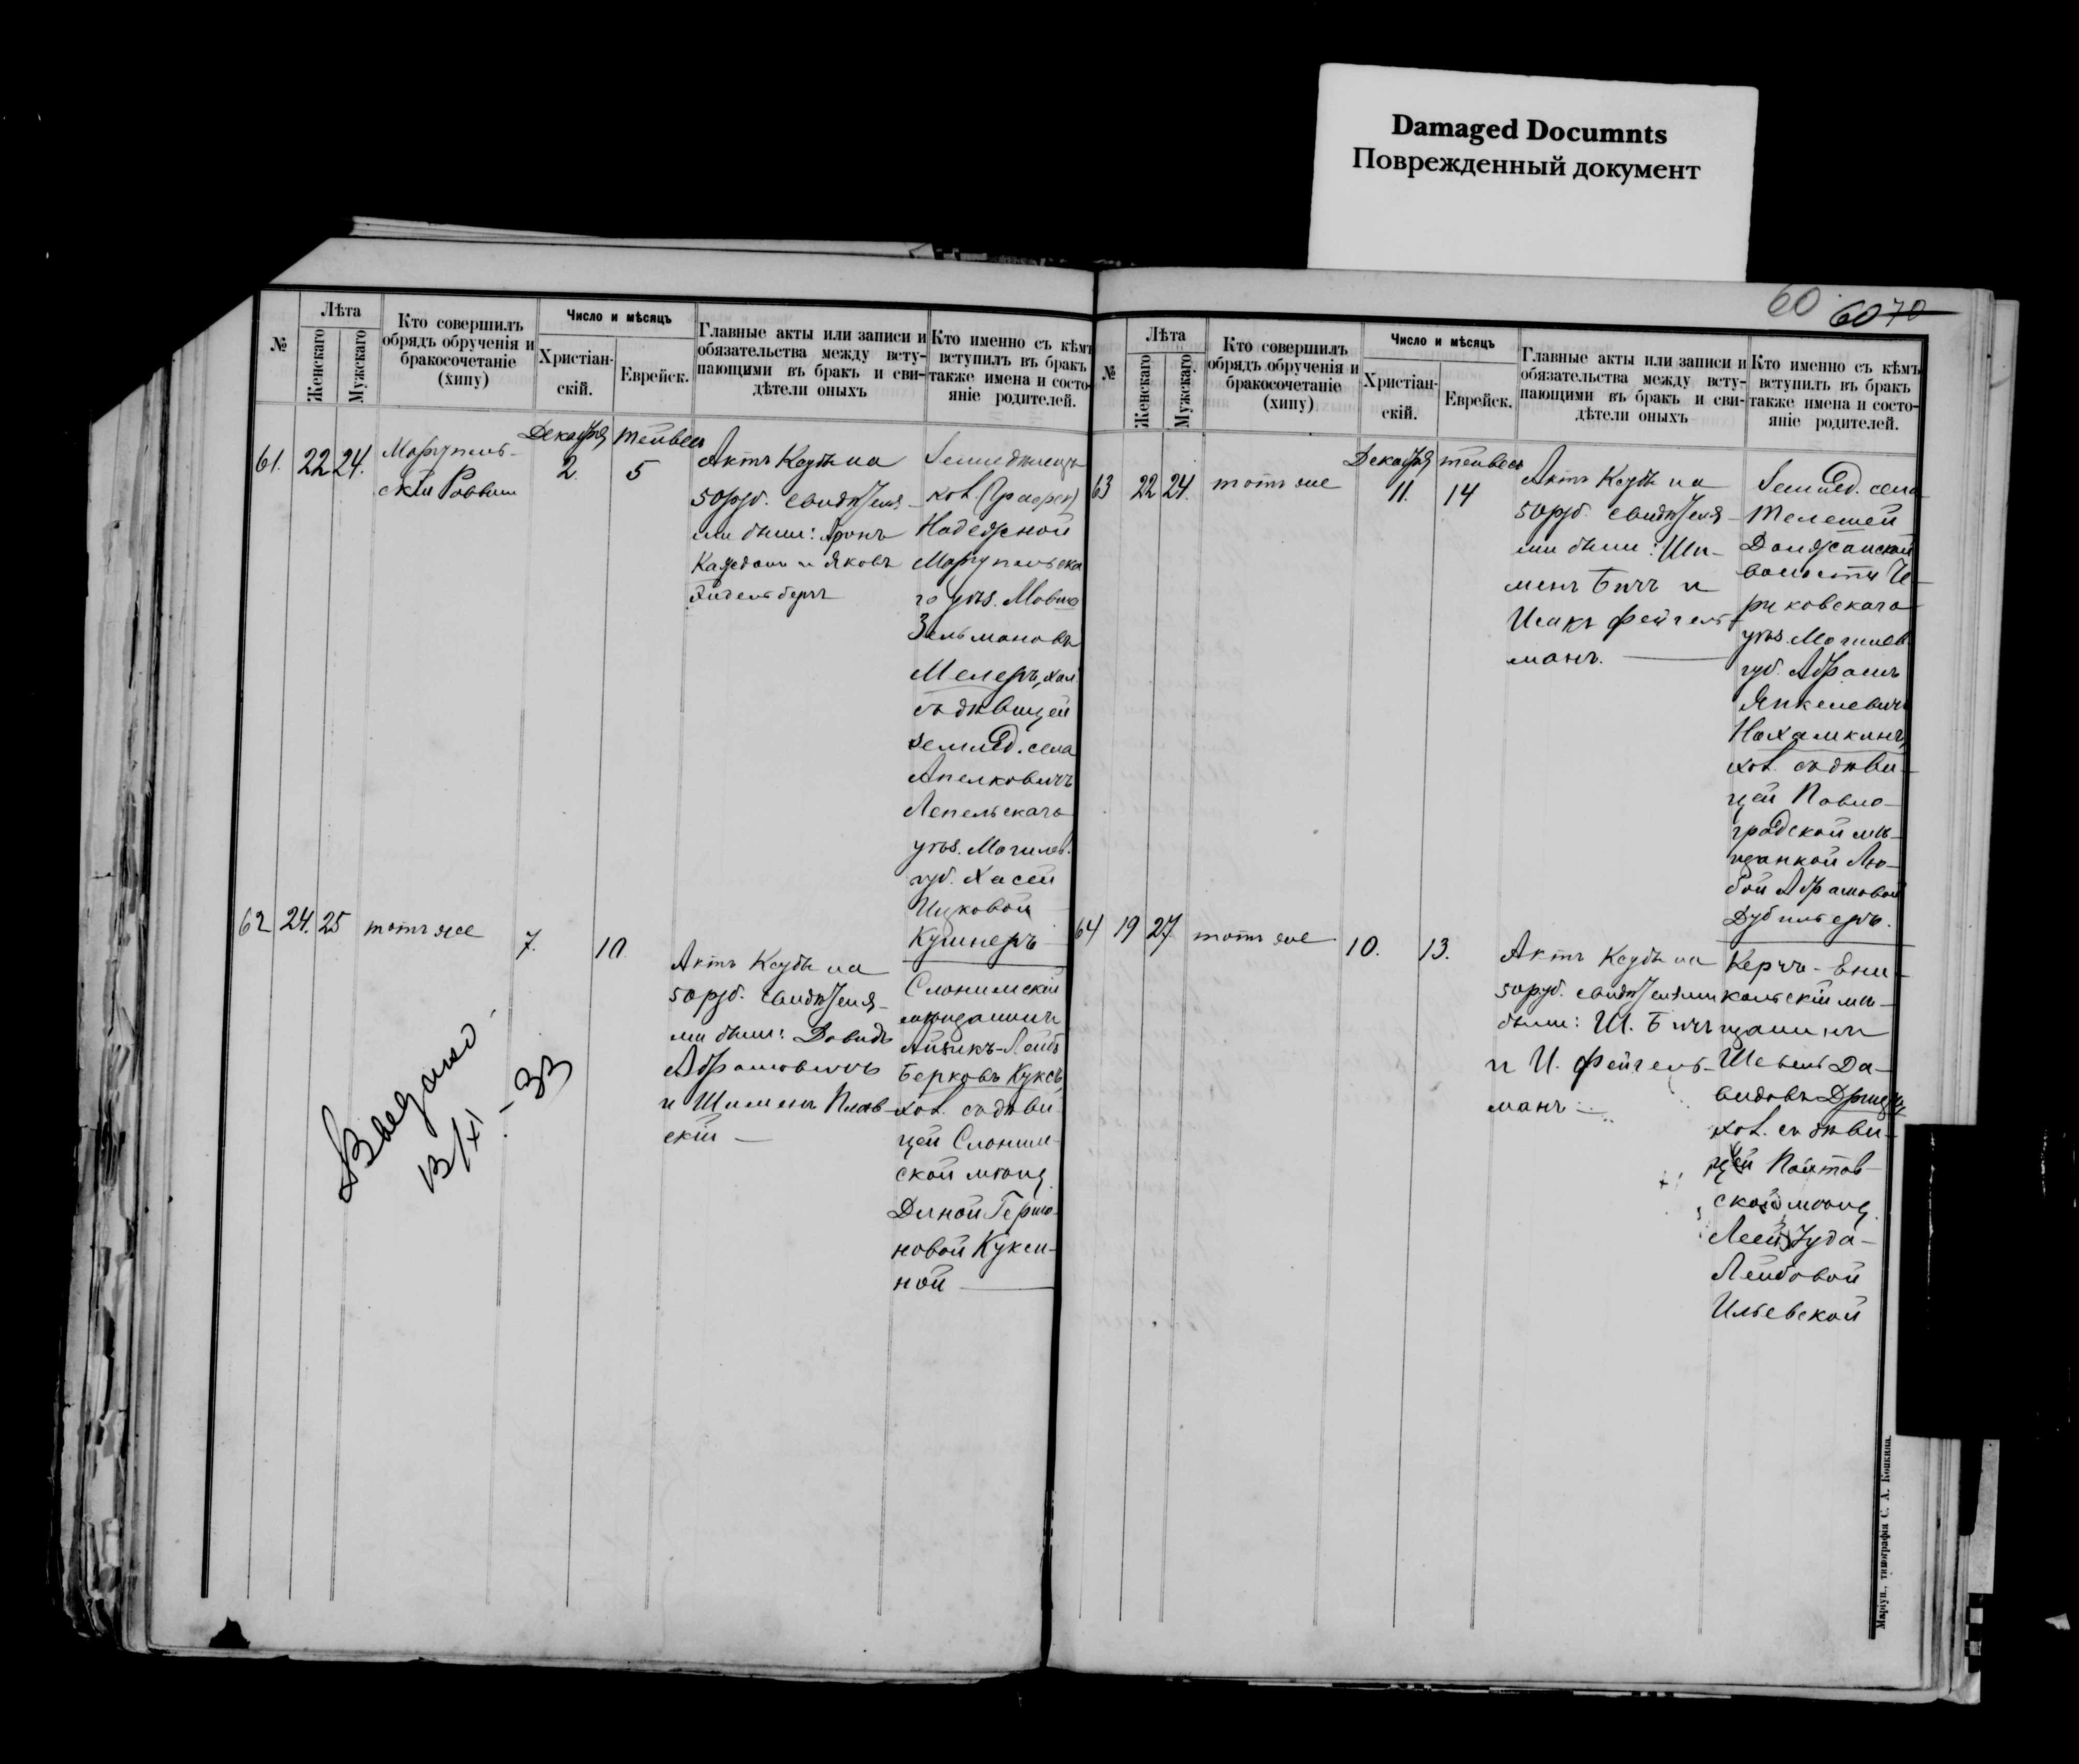 Damaged Documnts
Поврежденный документ
60 60 70
№
Лѣта
Женскаго
Мужскаго
Кто совершилъ
обрядъ обрученія и
бракосочетаніе
(хипу)
Число и мѣсяцъ
Христіан-
скій.
Еврейск.
Главные акты или записи и
обязательства между всту-
пающими въ бракъ и сви-
дѣтели оныхъ
Кто именно съ кѣмъ
вступилъ въ бракъ
также имена и состо-
яніе родителей.
61. 22 24.
Маріуполь-
скій Раввин
Декабря
2.
Тейвесъ
5
Актъ Ксубы на
50 руб. свидѣтеля-
ми были: Аронъ
и Яковъ
Земледѣлецъ
кол. (Графск)
Надежной
Маріупольска
го уѣз. Мовша
Зельмановъ
Мелеръ, хол.
съ дѣвицей
землед. села
Лепельскаго
уѣз. Могилев.
губ. Хасей
Ицковой
Кушнеръ
62 24. 25
тотъ же
7.
10.
Актъ Ксубы на
50 руб. свидѣтеля-
ми были: Давидъ
Абрамовичъ
и Шименъ Плав-
скій
Слонимскій
мѣщанинъ
Айзикъ-Лейб
Берковъ Куксъ,
хол. съ дѣви-
цей Слоним-
ской мѣщ.
Диной Герша-
новой Кукси-
ной
Выдано
13/XI - 33
№
Лѣта
Женскаго
Мужскаго
Кто совершилъ
обрядъ обрученія и
бракосочетаніе
(хипу)
Число и мѣсяцъ
Христіан-
скій.
Еврейск.
Главные акты или записи и
обязательства между всту-
пающими въ бракъ и сви-
дѣтели оныхъ
Кто именно съ кѣмъ
вступилъ въ бракъ
также имена и состо-
яніе родителей.
63 22 24.
тотъ же
Декабря
11.
Тейвесъ
14
Актъ Ксубы на
50 руб. свидѣтеля-
ми были: Ши-
менъ Бичъ и
Исакъ Фейгель-
манъ.
Землед. села
Телешей
Должанской
волости Че-
риковскаго
уѣз. Могилев.
губ. Абрамъ
Янкелевичъ
Нахамкинъ,
хол. съ дѣви-
цей Павло-
градской мѣ-
щанкой Лю-
бой Абрамовой
64 19 27.
тотъ же
10.
13.
Актъ Ксубы на
50 руб. свидѣтелями
были: Ш. Бичъ
и И. Фейгель-
манъ
Керчь-Ени-
кольскій мѣ-
щанинъ
Шевель Да-
видовъ
хол. съ дѣви-
цей Полтав-
ской мѣщ.
Леей Іуда-
Лейбовой
Ильевской
Маріуп., типографія С. А. Копкина.